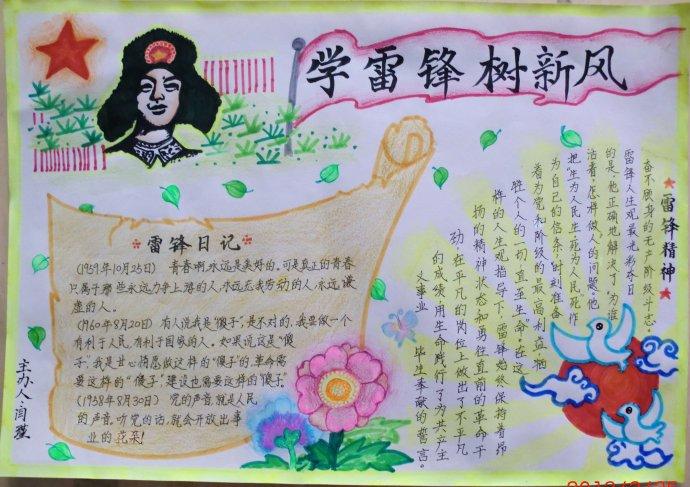 学雷锋树新风
雷锋日记
(1959年10月25日) 青春啊,永远是美好的,可是真正的青春
只属于那些永远力争上游的人,永远忘我劳动的人,永远谦
虚的人。
(1960年8月20日) 有人说我是"傻子",是不对的,我要做一个
有利于人民,有利于国家的人。如果说这是"傻
子",我是甘心情愿做这样的"傻子"的,革命需
要这样的"傻子",建设也需要这样的"傻子"。
(1958年8月30日) 党的声音,就是人民
的声音,听党的话,就会开放出事
业的花朵!
主办人:闫
雷锋精神
奋不顾身的无产阶级斗志。
雷锋人生观最光彩夺目
的是,他正确地解决了"为谁
活着,怎样做人的问题"他
把"生为人民生,死为人民死"作
为自己的信条,时刻准备
着为党和阶级的最高利益牺
牲个人的一切,直至生命。在这
样的人生观指导下,雷锋始终保持着昂
扬的精神状态和勇往直前的革命干
劲,在平凡的岗位上做出了不平凡
的成绩,用生命践行了为共产主
义事业 毕生奉献的誓言。